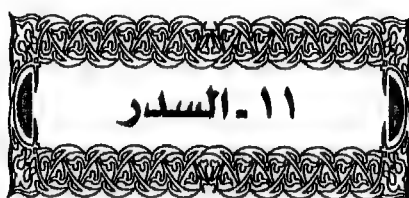 ١١ - السدر